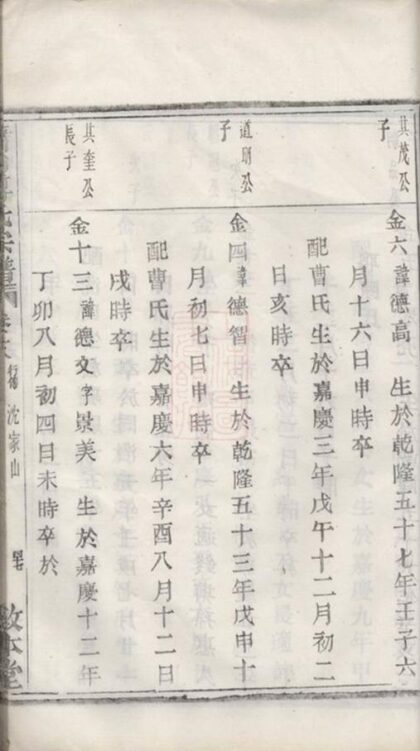 其茂公
子
金六諱德高 生於乾隆五十七年壬子六
月十六日申時卒
配曹氏生於嘉慶三年戊午十二月初二
日亥時卒
道明公
子
金四諱德智 生於乾隆五十三年戊申十
月初七日申時卒
配曹氏生於嘉慶六年辛酉八月十二日
戌時卒
其奎公
長子
金十三諱德文字景美 生於嘉慶十二年
丁卯八月初四日未時卒於
沈家山
敘本堂